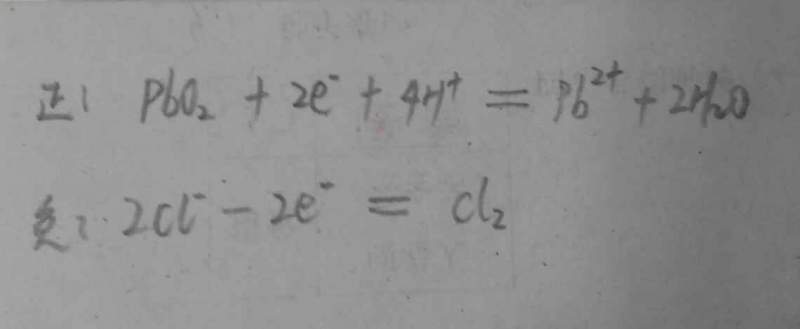 正: PbO₂ + 2e⁻ + 4H⁺ = Pb²⁺ + 2H₂O
负: 2Cl⁻ - 2e⁻ = Cl₂